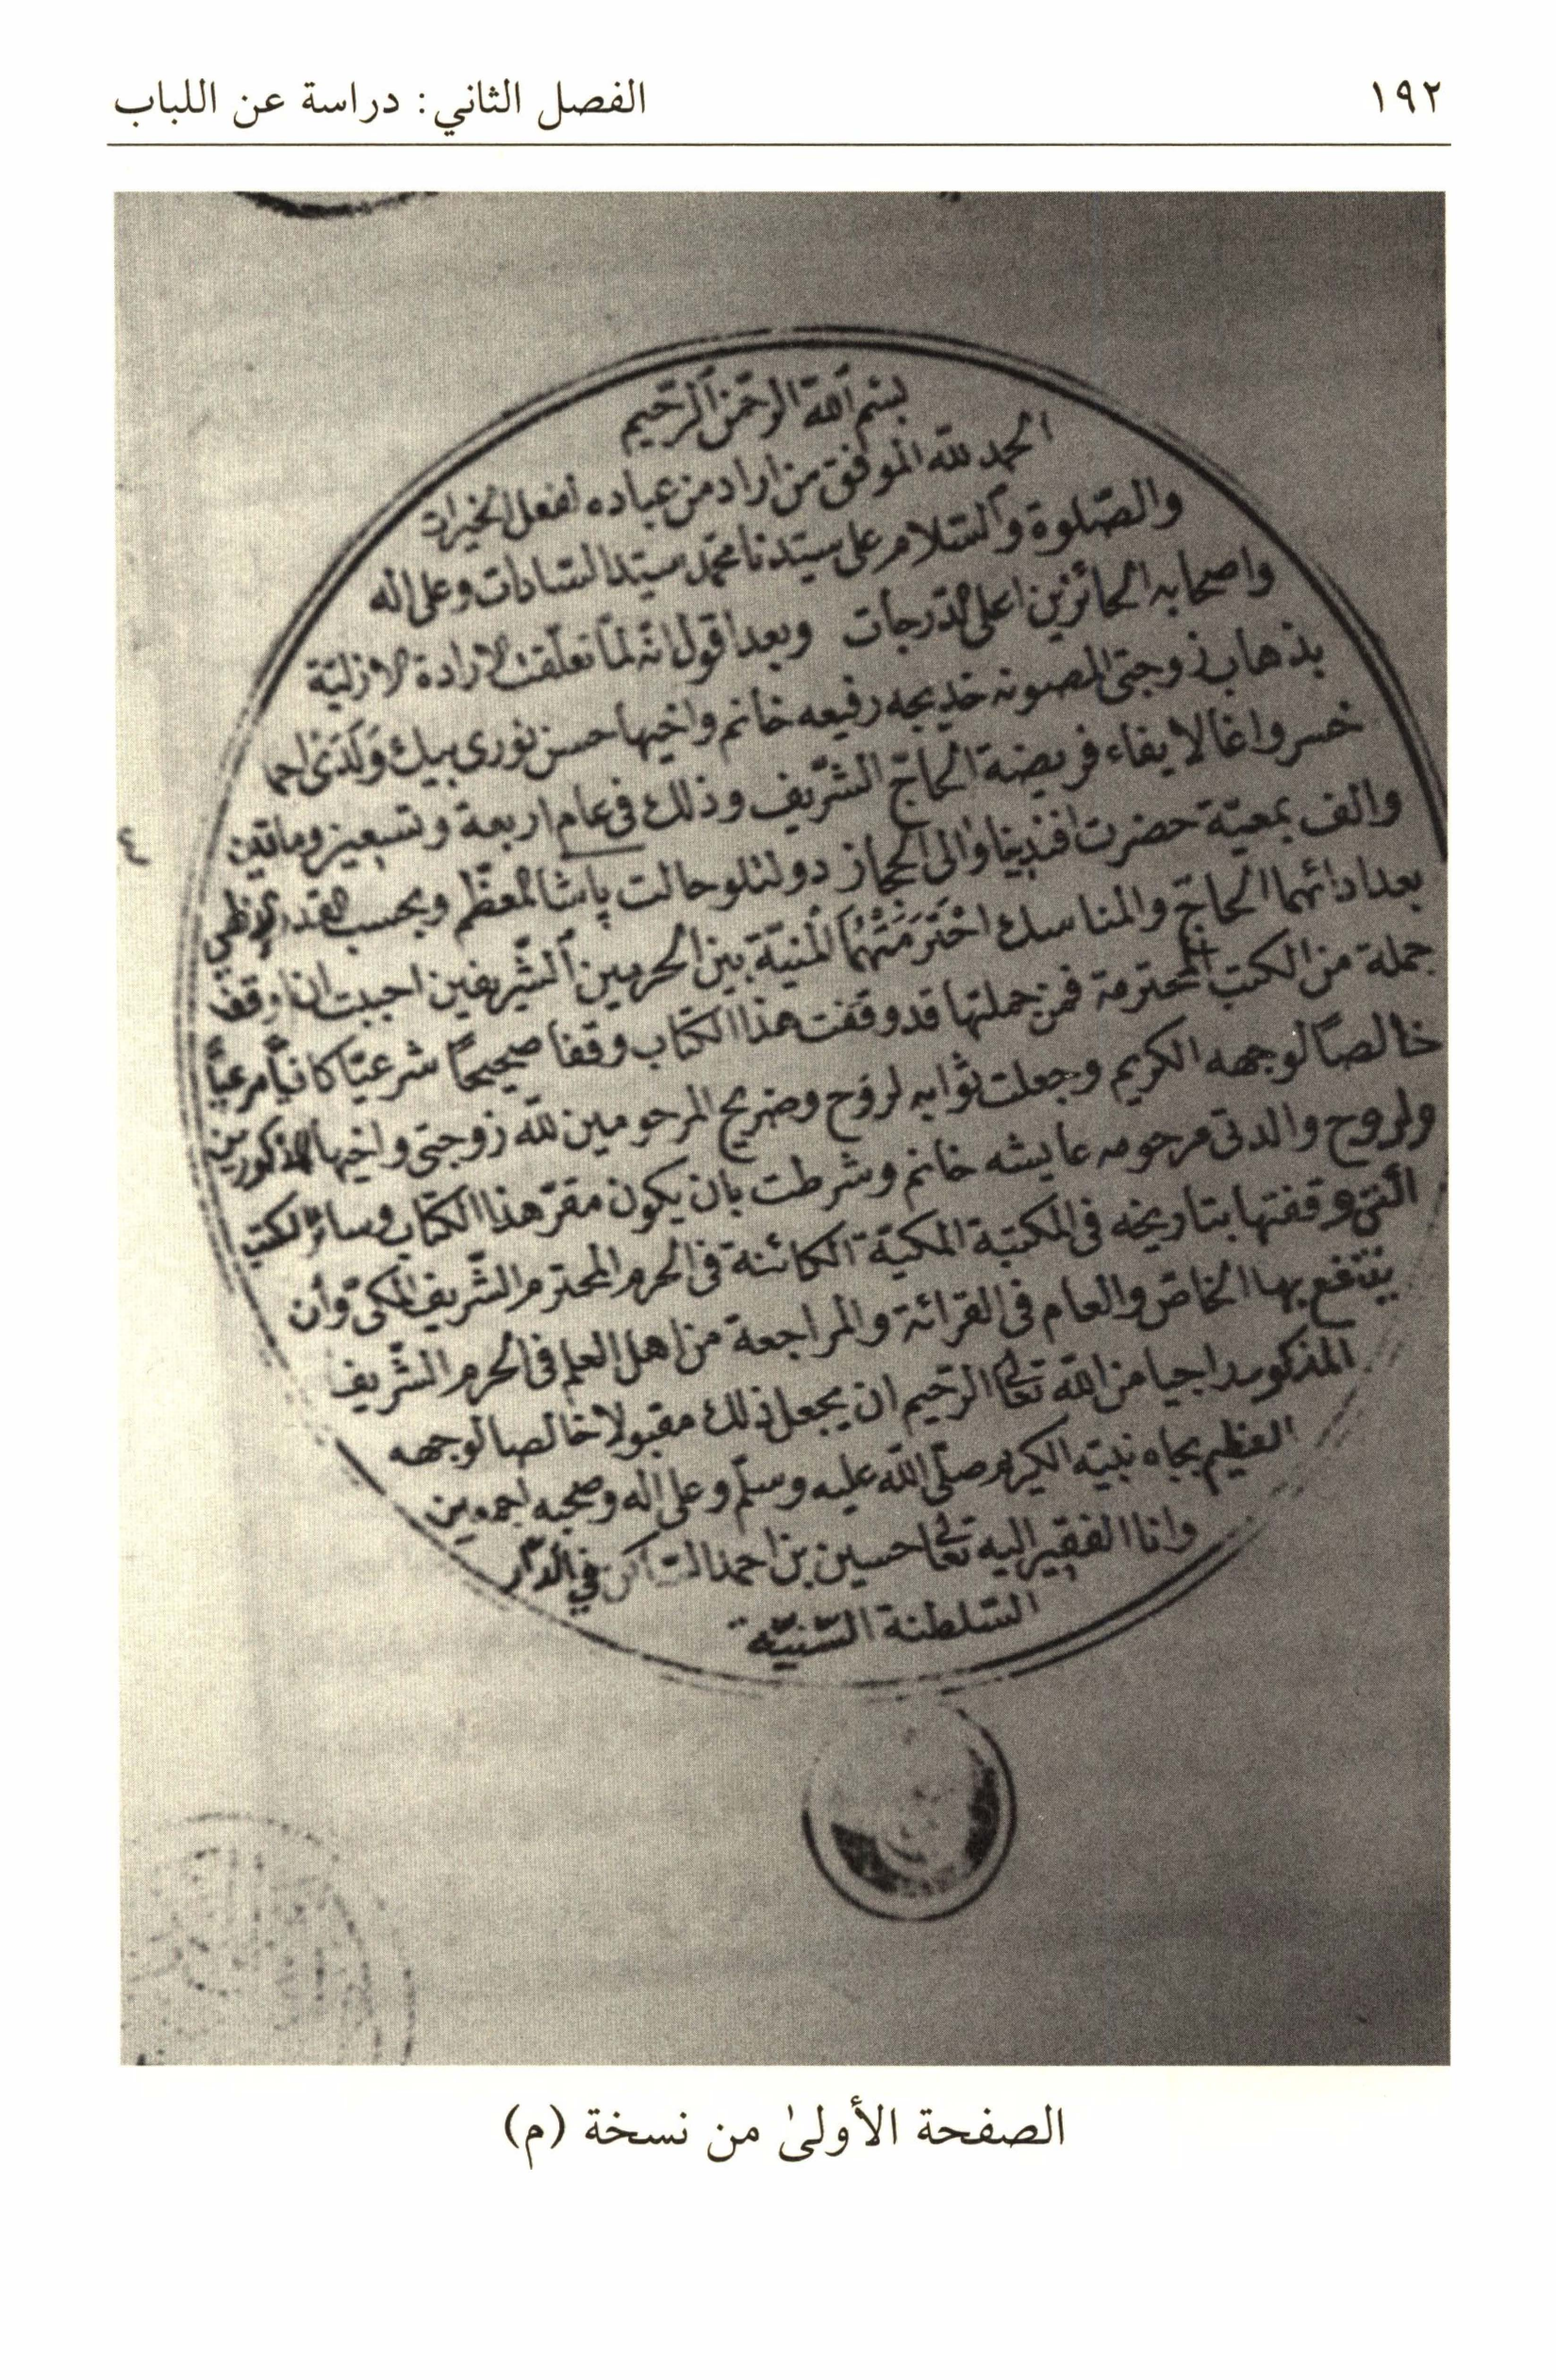 ١٩٢ الفصل الثاني: دراسة عن اللباب
بسم الله الرحمن الرحيم
الحمد لله الموفق من اراد من عباده لفعل الخيرات
والصّلوة والسّلام على سيّدنا محمّد سيّد السّادات وعلى اله
واصحابه الحائزين اعلى الدّرجات وبعد اقول انّه لمّا تعلّقت الارادة الازليّة
بذهاب زوجتى المصونه خديجه رفيعه خانم واخيها حسن نورى بيك وَلَدَىْ
خسرو اغا لايفاء فريضة الحاجّ الشّريف وذلك فى عام اربعة وتسعين وماتين
والف بمعيّة حضرت افندينا والى الحجاز دولتلو حالت پاشا المعظّم وبحسب القدر
بعد ادائهما الحاجّ والمناسك اخْتَرَمَتْهُمَا المنيّة بين الحرمين الشّريفين احببت ان اوقف
جملة من الكتب المحترمة فمن جملتها قد وقفت هذا الكتاب وقفا صحيحًا شرعيّا مرعيّاً
خالصًا لوجهه الكريم وجعلت ثوابه لروح وضريح المرحومين لله زوجتى واخيها المذكورين
ولروح والدتى مرحومه عايشه خانم وشرطت بان يكون مقرّ هذا الكتاب وسائر الكتب
الّتى وقفتها بتاريخه فى المكتبة المكيّة الكائنة فى الحرم المحترم الشّريف المكىّ وأن
ينتفع بها الخاصّ والعام فى القرائة والمراجعة من اهل العلم فى الحرم الشّريف
المذكور راجيا من الله تعالى الرّحيم ان يجعل ذلك مقبولا خالصا لوجهه
العظيم بجاه نبيّه الكريم صلّى الله عليه وسلّم وعلى اله وصحبه اجمعين
وانا الفقير اليه تعالى حسين بن احمد السّاكن في الدّار
السّلطنة السّنيّة
الصفحة الأولىٰ من نسخة (م)